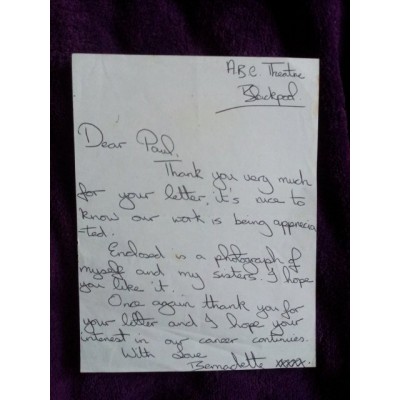 ABC. Theatre
Blackpool
Dear Paul.
Thank you very much
for your letter, it's nice to
know our work is being apprecia
-ted.
Enclosed is a photograph of
myself and my sisters. I hope
you like it.
Once again thank you for
your letter and I hope your
interest in our career continues.
With Love
Bernadette xxxxx.